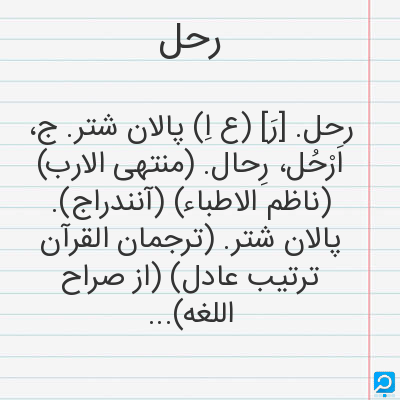 رحل
رحل. [رَ] (ع اِ) پالان شتر. ج،
اَرْحُل، رِحال. (منتهی الارب)
(ناظم الاطباء) (آنندراج).
پالان شتر. (ترجمان القرآن
ترتیب عادل) (از صراح
اللغه)...